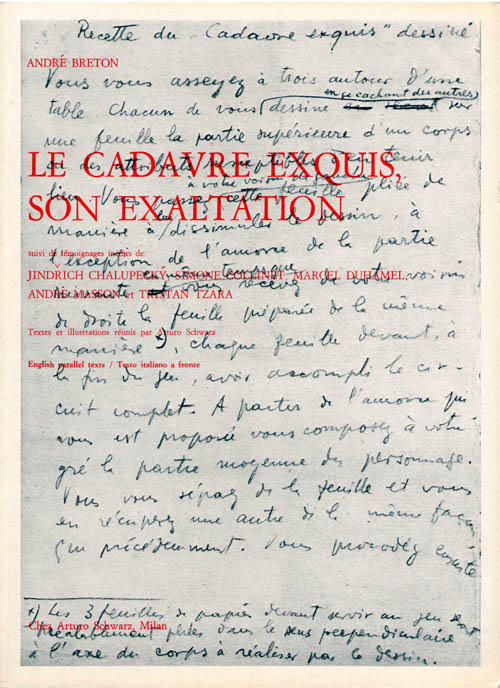 Recette du „Cadavre exquis" dessiné
ANDRÉ BRETON
Vous vous asseyez à trois autour d'une
en se cachant des autres
table. Chacun de vous dessine sur
une feuille la partie supérieure d'un corps
LE CADAVRE EXQUIS,
ou des attributs susceptibles d'en tenir
à votre voisin de gauche
lieu. Vous passez cette feuille pliée de
SON EXALTATION
manière à dissimuler le dessin, à
suivi de témoignages inédits de:
l'exception de l'amorce de la partie
JINDRICH CHALUPECKÝ, SIMONE COLLINET, MARCEL DUHAMEL,
vous recevez de votre voisin
ANDRÉ MASSON et TRISTAN TZARA
de droite la feuille préparée de la même
Textes et illustrations réunis par Arturo Schwarz
manière +), chaque feuille devant, à
English parallel texts / Testo italiano a fronte
la fin du jeu, avoir accompli le cir-
cuit complet. A partir de l'amorce qui
vous est proposée vous composez à votre
gré la partie moyenne du personnage.
Vous vous séparez de la feuille et vous
en récupérez une autre de la même façon
que précédemment. Vous procédez ensuite
+) Les 3 feuilles de papier devant servir au jeu sont
Chez Arturo Schwarz, Milan
préalablement pliées dans le sens perpendiculaire
à l'axe du corps à réaliser par le dessin.